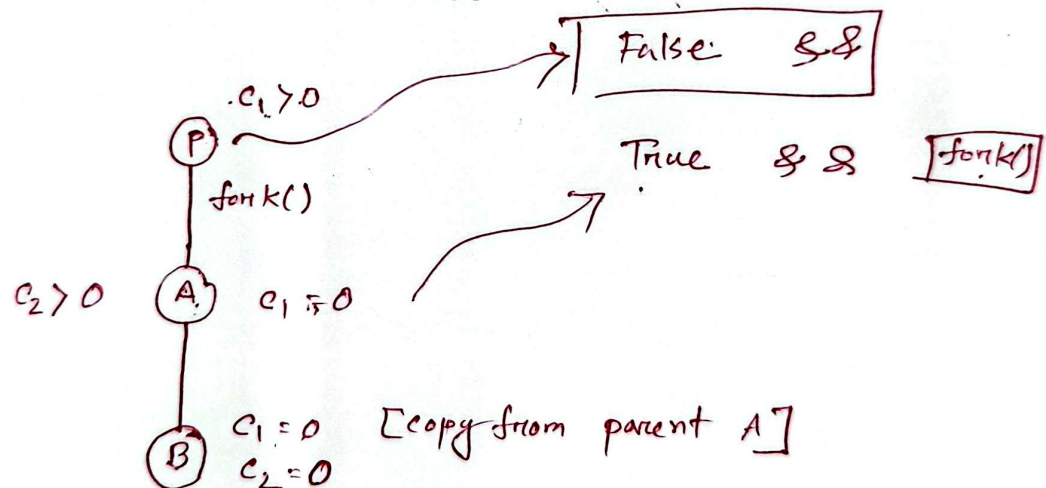 False &&
c₁ > 0
P
True && fork()
fork()
c₂ > 0 A c₁ = 0
c₁ = 0 [copy from parent A]
B c₂ = 0